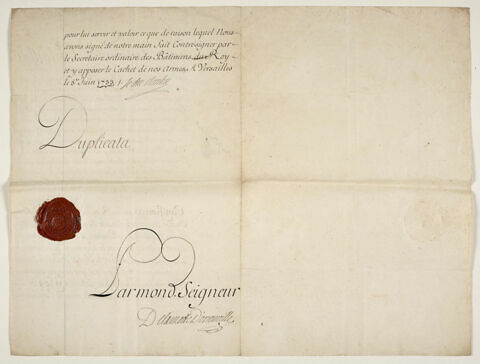 pour lui servir et valoir ce que de raison lequel Nous
avons signé de notre main fait Contresigner par
le Secretaire ordinaire des Bâtimens du Roy
et y apposer le Cachet de nos Armes A Versailles
le 5e Juin 1733
Duplicata
Par mond. Seigneur